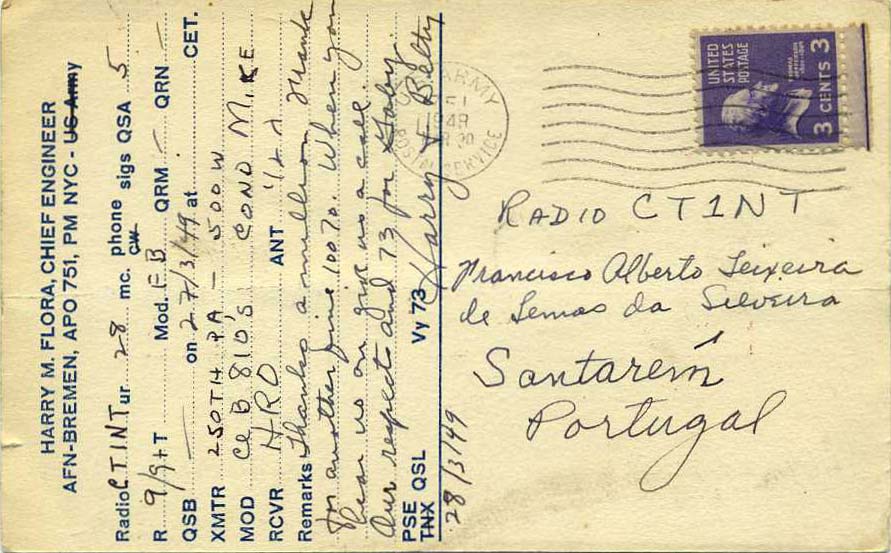 HARRY M. FLORA, CHIEF ENGINEER
AFN-BREMEN, APO 751, PM NYC - US Army
Radio CT1NT ur 28 mc. phone CW sigs QSA 5
R 9/9+ T Mod. FB QRM - QRN -
QSB - on 27/3/49 at CET.
XMTR 250TH PA - 500 W
MOD Cl B 810's COND MIKE
RCVR HRO ANT 1/2 λ
Remarks Thanks a million Frank
for another fine 100%. When you
hear us on give us a call.
Our respects and 73 for Gaby.
PSE TNX QSL Vy 73 Harry & Betty
28/3/49
U.S. ARMY
1949
POSTAL SERVICE
UNITED
STATES
POSTAGE
3 CENTS 3
RADIO CT1NT
Francisco Alberto Teixeira
de Lemos da Silveira
Santarém
Portugal